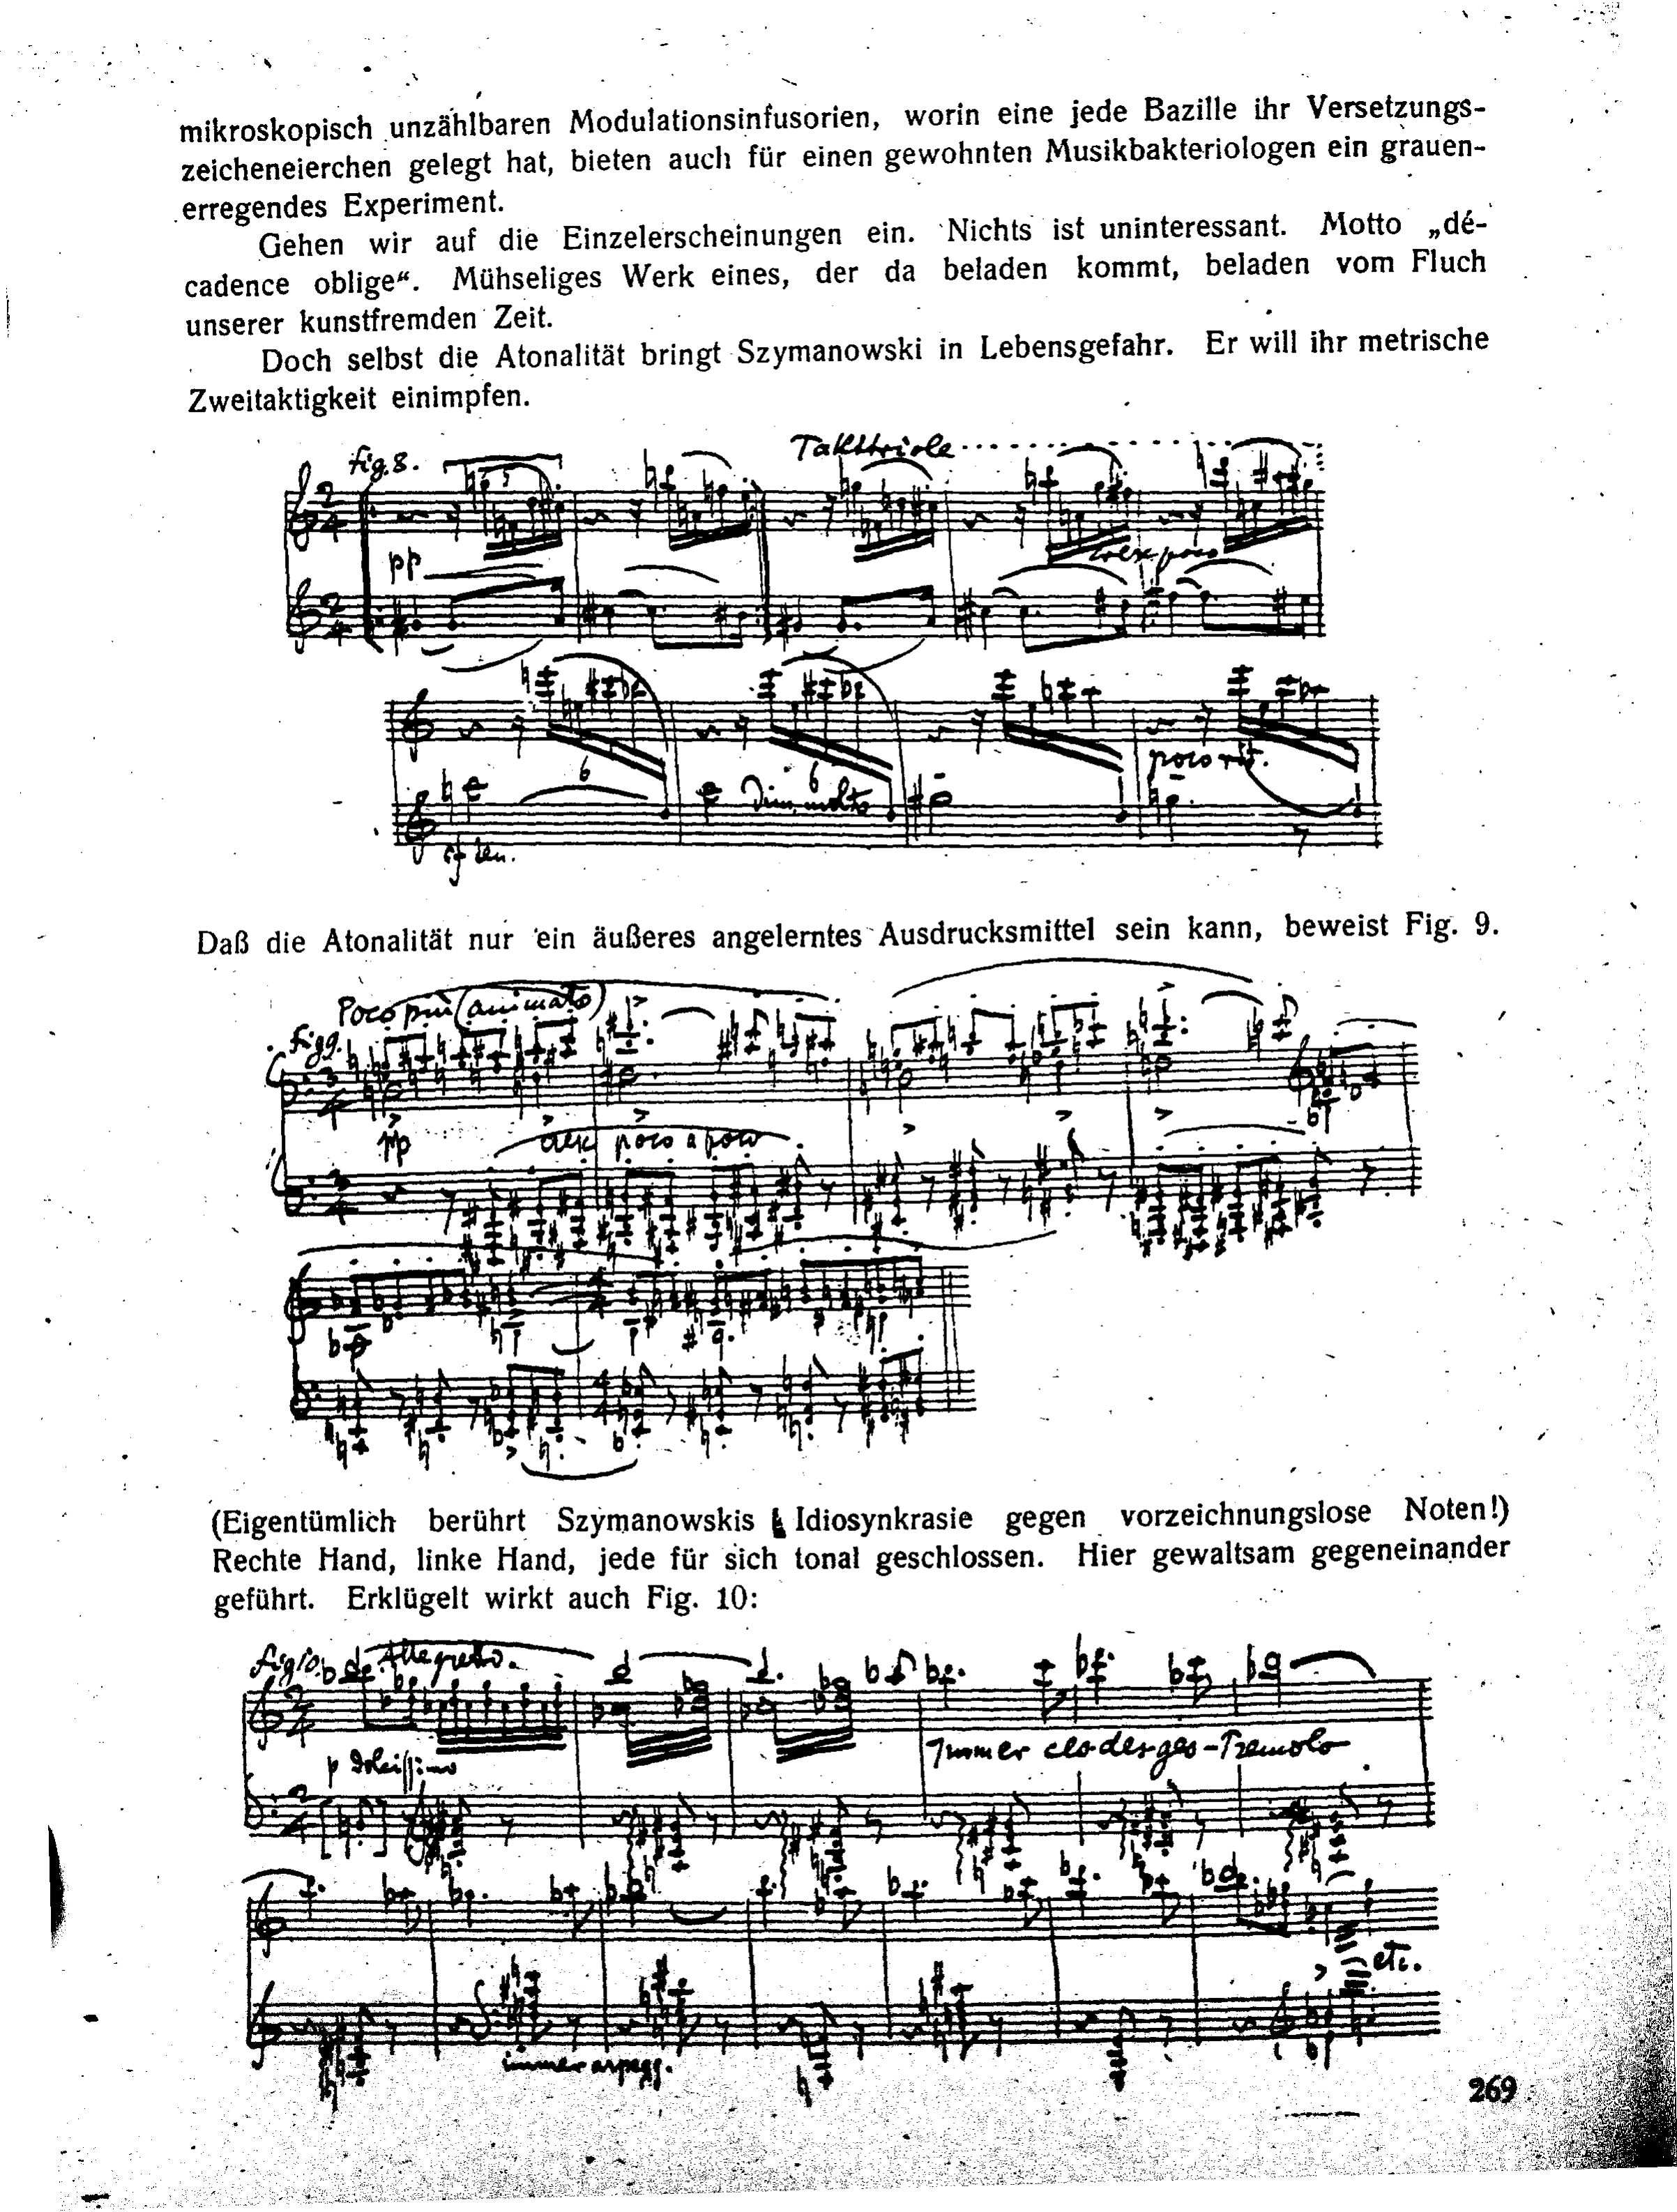 mikroskopisch unzählbaren Modulationsinfusorien, worin eine jede Bazille ihr Versetzungs-
zeicheneierchen gelegt hat, bieten auch für einen gewohnten Musikbakteriologen ein grauen-
erregendes Experiment.
Gehen wir auf die Einzelerscheinungen ein. Nichts ist uninteressant. Motto „dé-
cadence oblige“. Mühseliges Werk eines, der da beladen kommt, beladen vom Fluch
unserer kunstfremden Zeit.
Doch selbst die Atonalität bringt Szymanowski in Lebensgefahr. Er will ihr metrische
Zweitaktigkeit einimpfen.
fig. 8.
Takttriole
2 4
5
pp
cresc poco
2 4
6
6
poco rit.
Dim. molto
sf ten.
Daß die Atonalität nur ein äußeres angelerntes Ausdrucksmittel sein kann, beweist Fig. 9.
Poco più (animato)
fig 9.
3 4
pp
cresc poco a poco
3 4
4 4
4 4
(Eigentümlich berührt Szymanowskis Idiosynkrasie gegen vorzeichnungslose Noten!)
Rechte Hand, linke Hand, jede für sich tonal geschlossen. Hier gewaltsam gegeneinander
geführt. Erklügelt wirkt auch Fig. 10:
fig 10. Allegretto.
2 4
Immer ces des ges-Tremolo
p dolcissimo
2 4
etc.
immer arpegg.
269